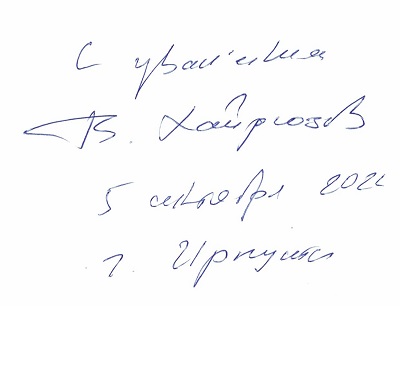 С уважением
В. Хайрюзов
5 октября 202
г. Иркутск